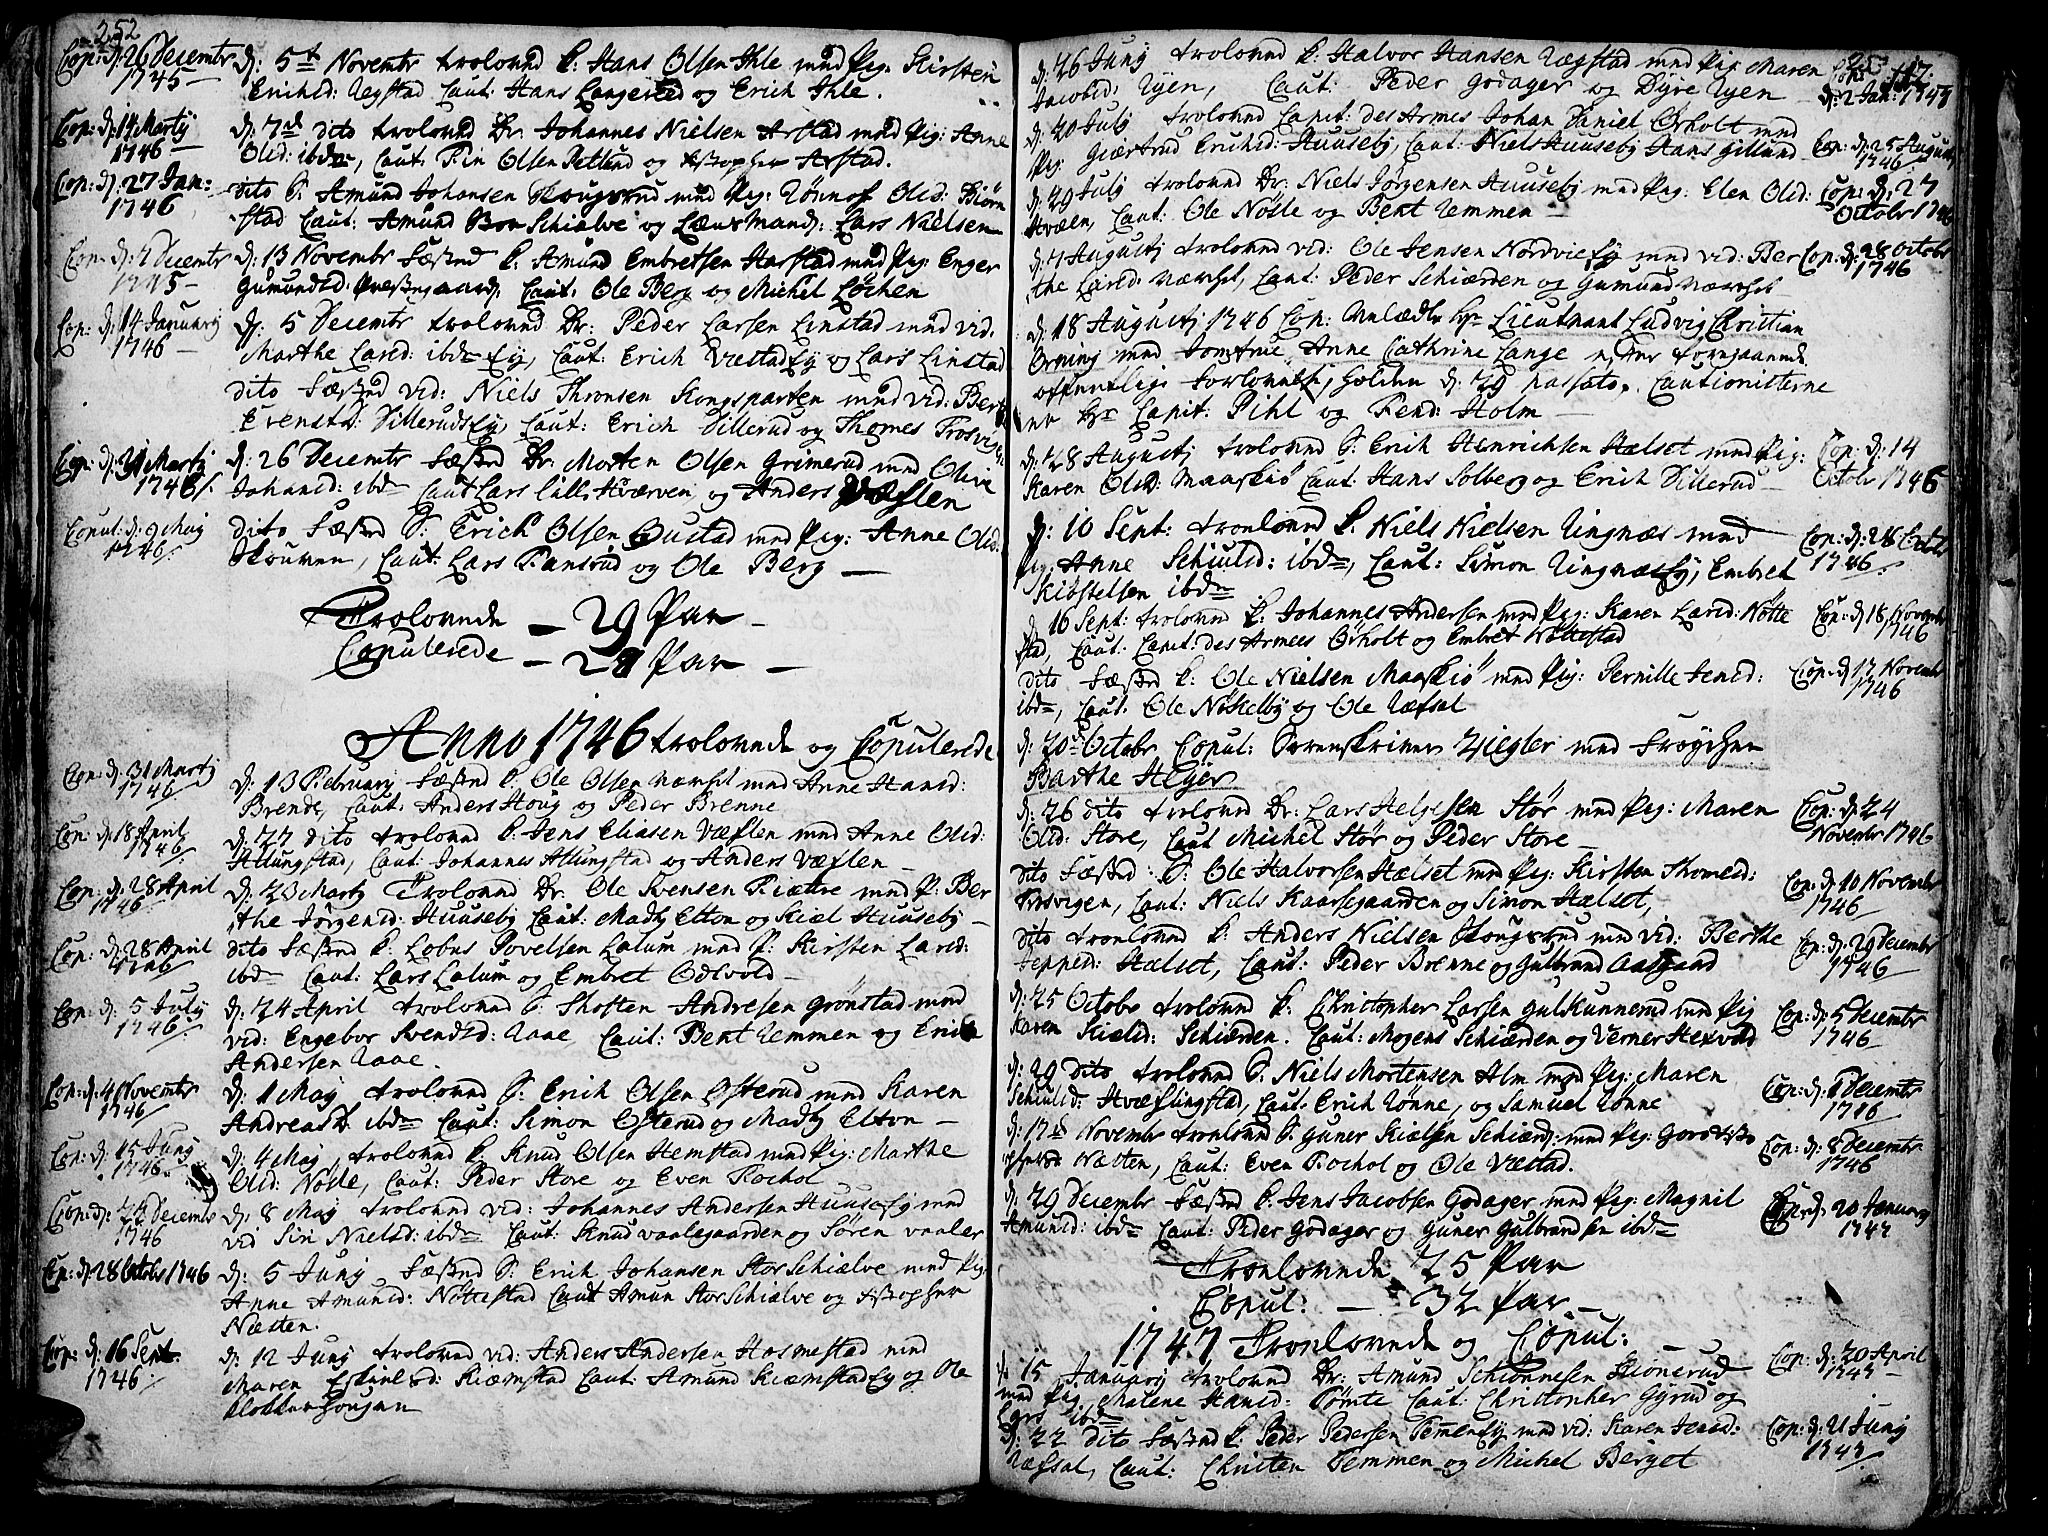 252
Cop: d: 26 Decembr
1745
d: 5t Novembr trolovud S. Hans Olsen Ihle med Pig: Kirsten
Erichsd: Negstad Caut: Hans Langered og Erich Ihle.
Cop: d: 14 Martij
1746
d: 7de dito trolovud Dr: Johannes Nielsen Arstad med Pig: Anne
Olsd: ibdm, Caut: Olsen Petlund og Arstad.
Cop: d: 27 Jan:
1746
dito S. Amund Johansen Skougsrud med Pig: Rønnof Olsd: Biørn
stad Caut: Amund Schiælve og Lænsmand: Lars Nielsen
Cop: d: 2 Decembr
1745
d: 13 Novembr Fæstud S. Amund Embretsen Harstad med Pig: Enger
Gumundsd: Caut: Ole Berg og Michel Løchen
Cop: d: 14 January
1746
d: 5 Decembr trolovud Dr: Peder Larsen Linstad med vid.
Marthe Larsd: ibdm Caut: Erich Væstad og Lars Linstad
dito Fæstud vid: Niels Thronsen Kongsparten med vid: Berte
Evensd: Dillerud Caut: Erich Dillerud og Thomes Trosvig
Cop: d: 21 Martij
1746
d: 26 Decembr Fæstud Dr. Morten Olsen Grimerud med Olive
Johansd: ibdm Caut Lars lille Hværven og Anders Væflen
Copul: d: 9 Maij
1746
dito Fæstud S. Erich Olsen Oustad med Pig: Anne Olsd:
Skouven, Caut: Lars og Ole Berg
Trolovede - 29 Par -
Copulerede - 28 Par -
Anno 1746 trolovede og Copulerede
Cop: d: 31 Martij
1746
d: 13 February Fæstud S. Ole Olsen Nærset med Anne Hansd:
Brende, Caut: Anders Houg og Peder Brenne
Cop: d: 18 April
1746
d: 22 dito trolovud S. Jens Eliasen Væflen med Anne Olsd:
Atlungstad, Caut: Johannes Atlungstad og Anders Væflen
Cop: d: 28 April
1746
d: 23 Martij Trolovud Dr. Ole Svensen med P: Ber
the Jørgensd: Huuseby Caut: Madtz Elton og Kiel Huuseby
Cop: d: 28 April
1746
dito Fæstud S. Lobus Povelsen Lalum med P: Kirsten Larsd:
ibdm Caut: Lars Lalum og Embret Odlvold
Cop: d: 5 July
1746
d: 24 April trolovud S. Thosten Andresen Grønstad med
vid: Engebor Svendsd: Aaae Caut: Bent Lemmen og Erich
Andersen Aaae.
Cop: d: 4 Novembr
1746
d: 1 Maij trolovud S. Erich Olsen Østerud med Karen
Andreasd. ibdm Caut: Simon Østerud og Madtz Elton
Cop: d: 15 Junij
1746
d: 4 Maij, trolovud S. Knud Olsen Hemstad med Pig: Marthe
Olsd: Nøsle, Caut: Peder Store og Even Rochol
Cop: d: Decembr
1746
d: 8 Maij trolovud vid: Johannes Andersen Huuseby med
vid Siri Nielsd: ibdm Caut: Knud vaalegaarden og Søren vaaler
Cop: d: 28 Octobr 1746
d: 5 Junij Fæstud S. Erich Johansen StorSchiælve med Pig:
Anne Amunsd: Nøttestad Caut Amun StorSchiælve og
Næsten.
Cop: d: 16 Sept:
1746
d: 12 Junij trolovud vid: Anders Andersen Hosmestad med
Maren Kiæmstad Caut: Amund Kiæmstad og Ole
Klokkerhougen
d: 26 Junij trolovud S. Halvor Hansen Negstad med Pig: Maren
Jacobsd: Ryen, Caut: Peder Godager og Dyre Ryen
d: 2 Jan: 1747
d: 20 July trolovud Capit: des Armes Johan Daniel Ørholt med
Pig: Giærtrud Erichsd: Huuseby, Caut: Niels Huuseby Hans Gillund
Cop: d: 25 August
1746
d: 29 July trolovud Dr: Niels Jørgensen Huuseby med Pig: Elen Olsd:
Hvælen, Caut: Ole Nøsle og Bent Lemmen
Cop: d: 27
Octobr 1746
d: 7 Augustij trolovud vid: Ole Jensen Nordvie med vid: Ber
the Larsd: Nærset, Caut: Peder Schiærden og Gumund Nærset
Cop: d: 28 Octobr
1746
d: 18 Augustij 1746 Cop: Velædle hr Lieutnant Ludvig Christian
Orning med Jomfrue Anne Cathrine Lange efter foregaaende
offentlige Forlovelse, holden d: 29 Passato. Cautionisterne
er hr Capit: Pihl og Fend: Holm
d: 28 Augustij trolovud S. Erich Henrichsen Hælset med Pig:
Karen Olsd: Maaskiø Caut: Hans Solberg og Erich Dillerud
Cop: d: 14
Octobr 1746
d: 10 Sept: tronlovud S. Niels Nielsen Ringnæs med
Pig: Anne Schiulsd: ibdm, Caut: Simon Ringnæs, Embret
Kiøstelsen ibdm
Cop: d: 28 Octobr
1746
d: 16 Sept: trolovud S. Johannes Andersen med Pig: Karen Larsd: Nøtte
stad, Caut: Capit: des Armes Ørholt og Embret Nøttestad
Cop: d: 18 Novembr
1746
dito Fæstud S. Ole Nielsen Maaskiø med Pig: Pernille Jensd:
ibdm, Caut: Ole Nøkelby og Ole Næfsal
Cop: d: 17 Novembr
1746
d: 20de Octobr Copul: Sorenskriver Ziegler med Frøychen
Barthe Heyer
d: 26 dito trolovud Dr: Lars Helgesen Stør med Pig: Maren
Olsd: Store, Caut Michel Stør og Peder Store
Cop: d: 24
Novembr 1746
dito Fæstud S. Ole Halvorsen Hælset med Pig: Kirsten Thomesd:
Trosvigen, Caut: Niels Kaarsegaarden og Simon Hælset,
Cop: d: 10 Novembr
1746
dito tronlovud S. Anders Nielsen Skougsrud med vid: Berthe
Jeppesd: Hælset, Caut: Peder Brenne og Gulbrand Aasgaard
Cop: d: 29 Decembr
1746
d: 25 Octobr trolovud S. Christopher Larsen Gulkunnerud med Pig
Karen Kielsd: Schiærden. Caut: Mogens Schiærden og Verner Hexvold
Cop: d: 5 Decembr
1746
d: 29 dito trolovud S. Niels Mortensen Alm med Pig: Maren
Schiulsd: Hvæflingstad, Caut: Erich Rønne, og Samuel Rønne
Cop: d: 8 Decembr
1746
d: 17de Novembr tronlovud S. Guner Kielsen Schiærd: med Pig:
Nætten, Caut: Even Rochol og Ole Væstad.
Cop: d: 8 Decembr
1746
d: 29 Decembr Fæstud S. Jens Jacobsen Godager med Pig: Magnil
Amunsd: ibdm Caut: Peder Godager og Guner Gulbransen ibdm
Cop: d: 20 January
1747
Tronlovede 25 Par
Copul: - 32 Par -
1747 Tronlovede og Copul:
d: 15 January trolovud Dr: Amund Schiønnesen Stønerud
med Pig: Malene Hansd: Tømte Caut: Christopher Gyrud og
Lars ibdm
Cop: d: 20 April
1747
d: 22 dito Fæstud S. Peder Pedersen Temmen med vid: Karen Jensd:
Næfsal, Caut: Christen Temmen og Michel Berget
Cop: d: 21 Junij
1747